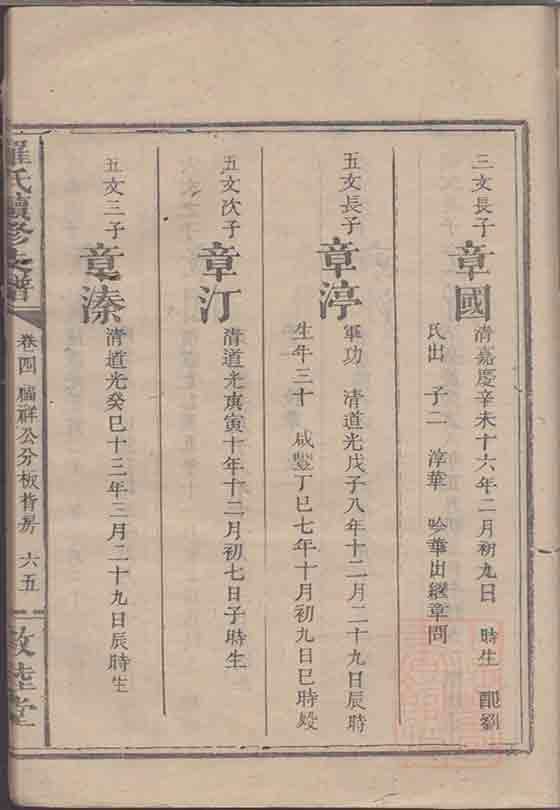 三文長子
章國
清嘉慶辛未十六年二月初九日 時生 配劉
氏出 子二 淳華 吟華出繼章問
五文長子
章渟
軍功 清道光戊子八年十二月二十九日辰時
生年三十 咸豐丁巳七年十月初九日巳時歿
五文次子
章汀
清道光庚寅十年十二月初七日子時生
五文三子
章溱
清道光癸巳十三年三月二十九日辰時生
羅氏續修支譜
卷四 福祥公分板背房 六五
敦睦堂